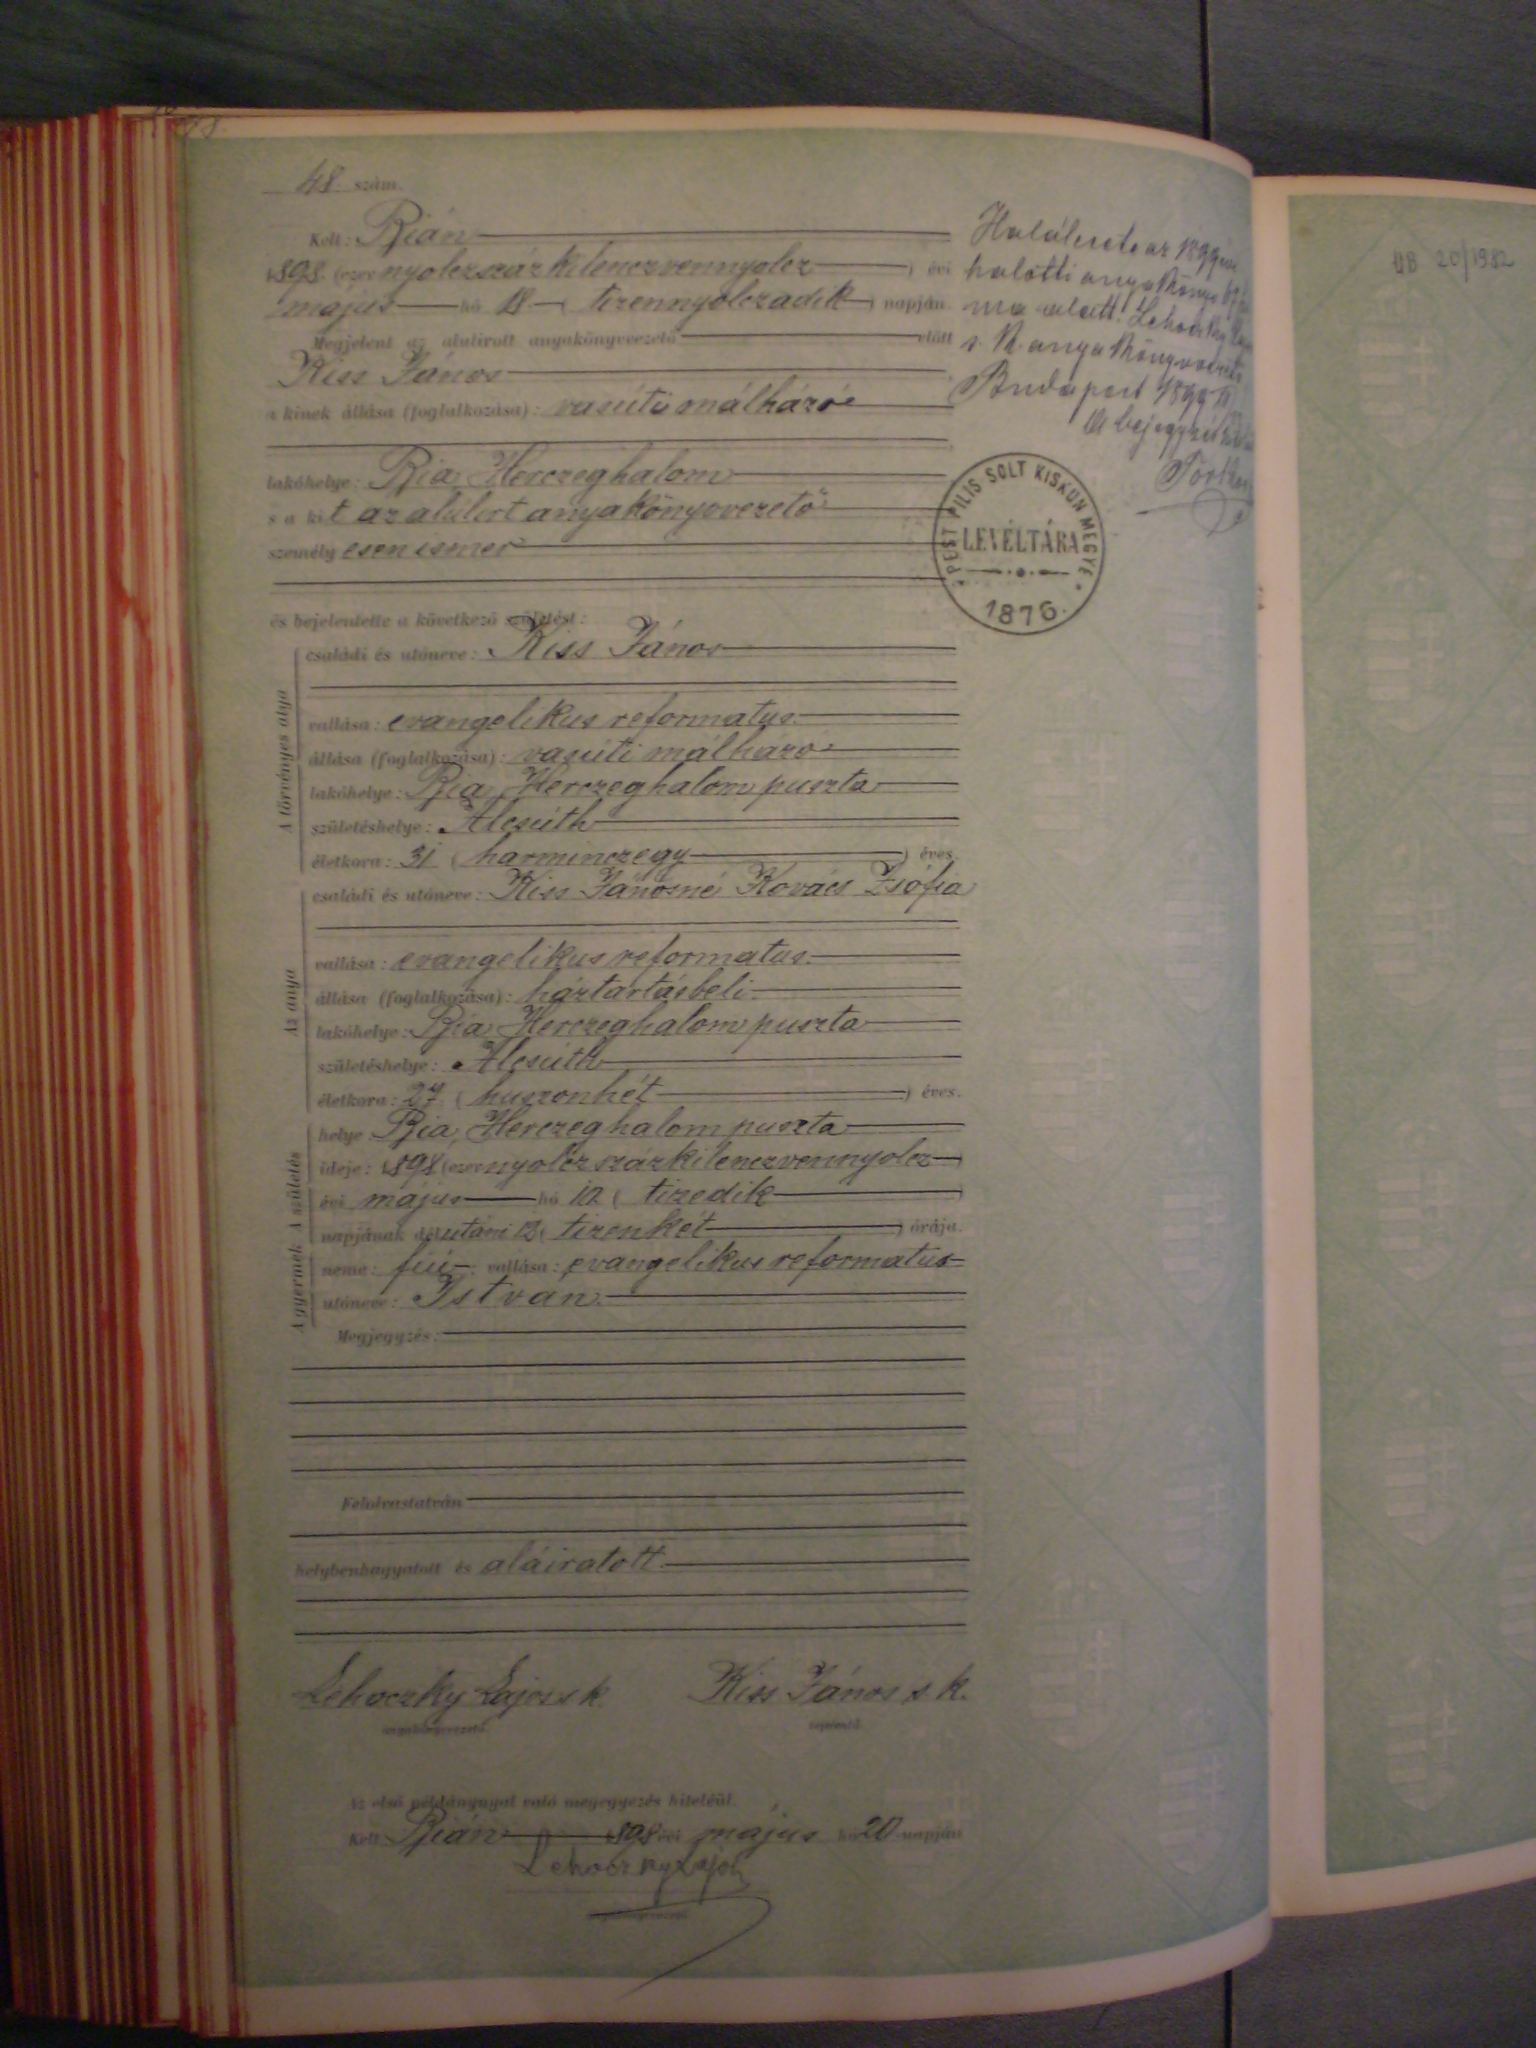 48. szám.
Kelt: Bián
1898. (ezer nyolczszázkilenczvennyolcz) évi
május hó 18 (tizennyolczadik) napján.
Megjelent az alulirott anyakönyvvezető előtt
Kiss János
a kinek állása (foglalkozása): vasúti málházó
lakóhelye: Bia, Herczeghalom
s a kit az alúlírt anyakönyvvezető
személyesen ismer
és bejelentette a következő születést:
A törvényes atya
családi és utóneve: Kiss János
vallása: evangelikus reformatus
állása (foglalkozása): vasúti málházó
lakóhelye: Bia, Herczeghalom puszta
születéshelye: Alcsúth
életkora: 31 (harminczegy) éves.
Az anya
családi és utóneve: Kiss Jánosné Kovács Zsófia
vallása: evangelikus reformatus.
állása (foglalkozása): háztartásbeli
lakóhelye: Bia, Herczeghalom puszta
születéshelye: Alcsúth
életkora: 27. (huszonhét) éves.
A születés
helye: Bia, Herczeghalom puszta
ideje: 1898 (ezer nyolczszázkilenczvennyolcz)
évi május hó 10 (tizedik)
napjának délutáni 12 (tizenkét) órája.
A gyermek
neme: fiú vallása: evangelikus reformatus
utóneve: István.
Megjegyzés:
Felolvastatván
helybenhagyatott és aláíratott.
Lehoczky Lajos s k.
Kiss János s. k.
anyakönyvvezető.
bejelentő.
Az első példánynyal való megegyezés hiteléül.
Kelt Bián 1898 évi május hó 20 napján
Lehoczky Lajos
anyakönyvvezető.
Halálesete az 1899 évi
halotti anyakönyv
ma alatt. Lehoczky
s. k. anyakönyvvezető
Budapest 1899
A bejegyzés
PEST PILIS SOLT KISKUN MEGYE
LEVÉLTÁRA
1876.
UB 20/1982